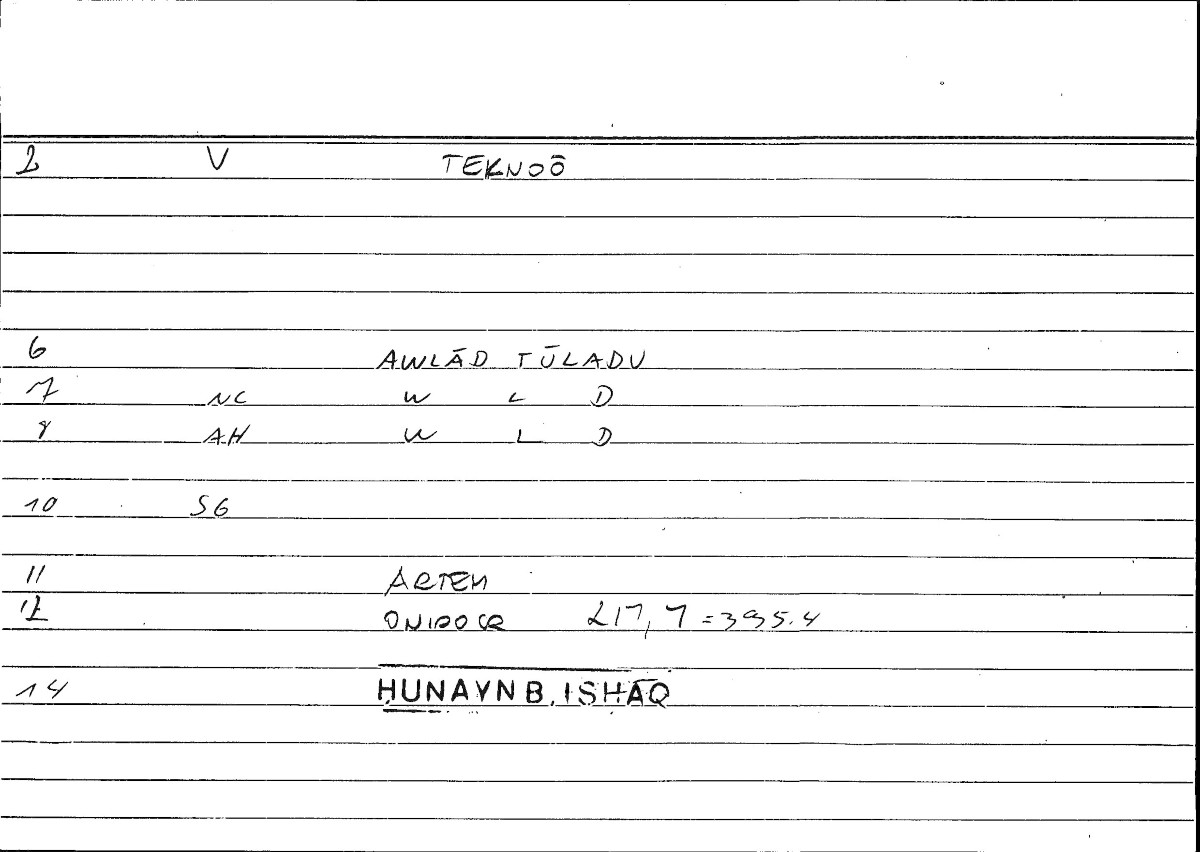 2 V TEKNOŌ
6 AWLĀD TŪLADU
7 NC W L D
8 AH W L D
10 SG
11 ARTEM
12 ONIROCR 217,7=395.4
14 ḤUNAYN B. ISḤĀQ